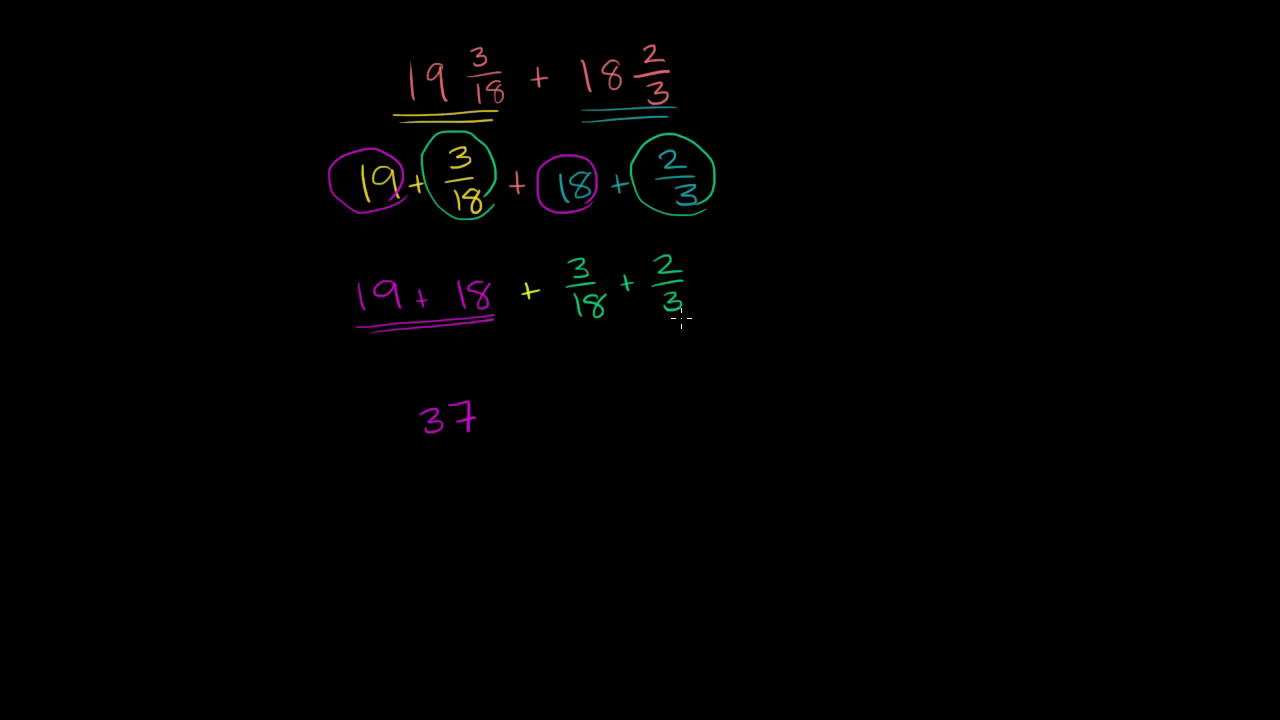 19 3/18 + 18 2/3
19 + 3/18 + 18 + 2/3
19 + 18 + 3/18 + 2/3
37